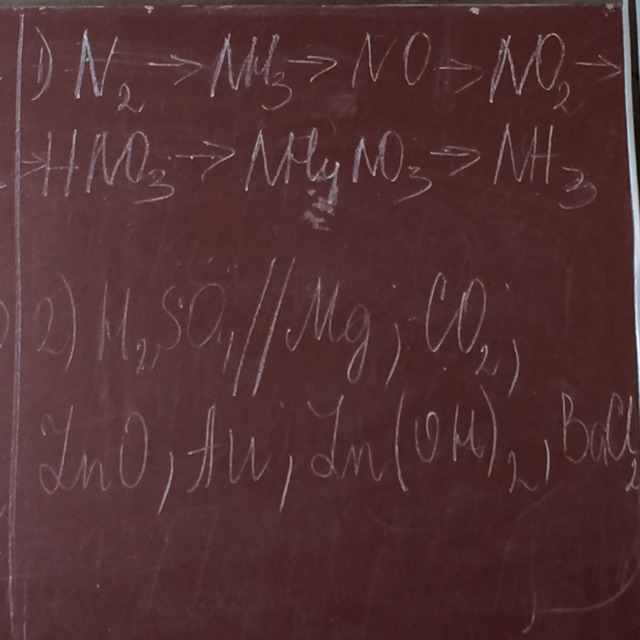 1) N₂ → NH₃ → NO → NO₂ →
→ HNO₃ → NH₄NO₃ → NH₃
2) H₂SO₄ // Mg, CO₂,
ZnO, Au, Zn(OH)₂, BaCl₂